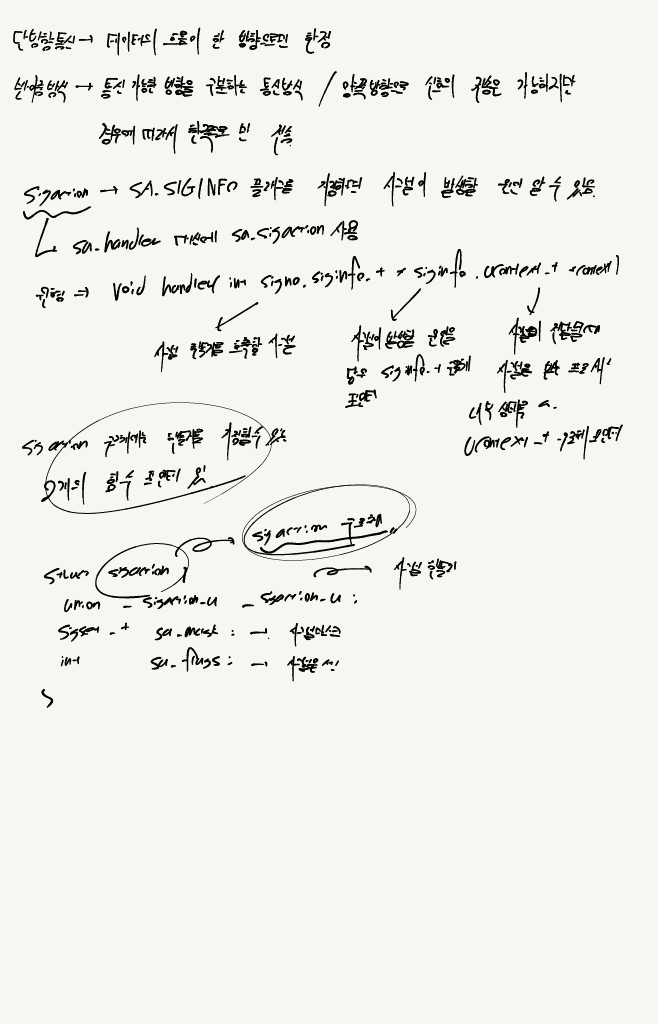 단방향통신 → 데이터의 흐름이 한 방향으로만 한정
반이중방식 → 통신 가능한 방향을 구분하는 통신방식 / 양쪽방향으로 신호의 전송은 가능하지만
경우에 따라서 한쪽으로만 전송
sigaction → SA_SIGINFO 플래그를 지정하면 시그널이 발생할 원인 알 수 있음.
sa_handler 대신에 sa_sigaction 사용
원형 → void handler int signo, siginfo_t * siginfo, ucontext_t *context)
시그널 핸들러를 호출할 시그널
시그널이 발생할 원인을
담은 siginfo_t 구조체
포인터
시그널이 전달될때
시그널을 받는 프로세
내부 상태를
ucontext_t 구조체 포인터
sigaction 구조체에는 핸들러를 지정할수 있는
2개의 함수 포인터 있
sigaction 구조체
struct sigaction {
시그널 핸들러
union _sigaction_u _sigaction_u;
sigset_t sa_mask; → 시그널마스크
int sa_flags; → 시그널옵션
}